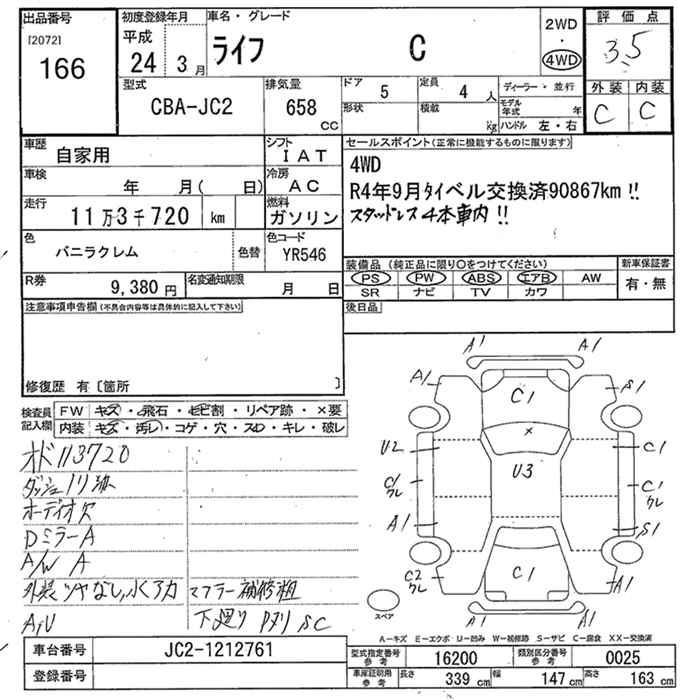 出品番号
[2072]
166
初度登録年月
平成
24 3月
車名・グレード
ライフ C
2WD
・
4WD
評価点
3.5
外装 内装
C C
型式
CBA-JC2
排気量
658
cc
ドア 5
形状
定員 4 人
積載 kg
ディーラー・並行
モデル年式 年
ハンドル 左・右
車歴
自家用
シフト
IAT
車検
年 月( 日)
冷房
AC
走行
11万3千720 km
燃料
ガソリン
色
バニラクレム
色替
色コード
YR546
R券
9,380円
名変通知期限
月 日
セールスポイント(正常に機能するものに限ります)
4WD
R4年9月タイベル交換済90867km !!
スタッドレス4本車内 !!
装備品(純正品に限り○をつけてください)
PS PW ABS エアB AW
SR ナビ TV カワ
新車保証書
有・無
注意事項申告欄(不具合内容等は具体的に記入して下さい)
後日品
修復歴 有〔箇所 〕
検査員記入欄
FW キズ・飛石・ヒビ割・リペア跡・×要
内装 キズ・汚レ・コゲ・穴・スレ・キレ・破レ
オド113720
ダッシュノリ跡
オーディオ欠
DミラーA
A/W A
外装ツヤなし,水アカ
A,U
マフラー補修粗
下廻り Pヌリ SC
A1 A1
A1 C1 S1
×
U2 U3 C1
C1 クレ C1 クレ
A1 S1
C2 クレ C1 A1
スペア
A1 A1
A－キズ E－エクボ U－凹み W－補修跡 S－サビ C－腐食 XX－交換済
車台番号
JC2-1212761
登録番号
型式指定番号 参考
16200
類別区分番号 参考
0025
車庫証明用 参考
長さ 339 cm
幅 147 cm
高さ 163 cm